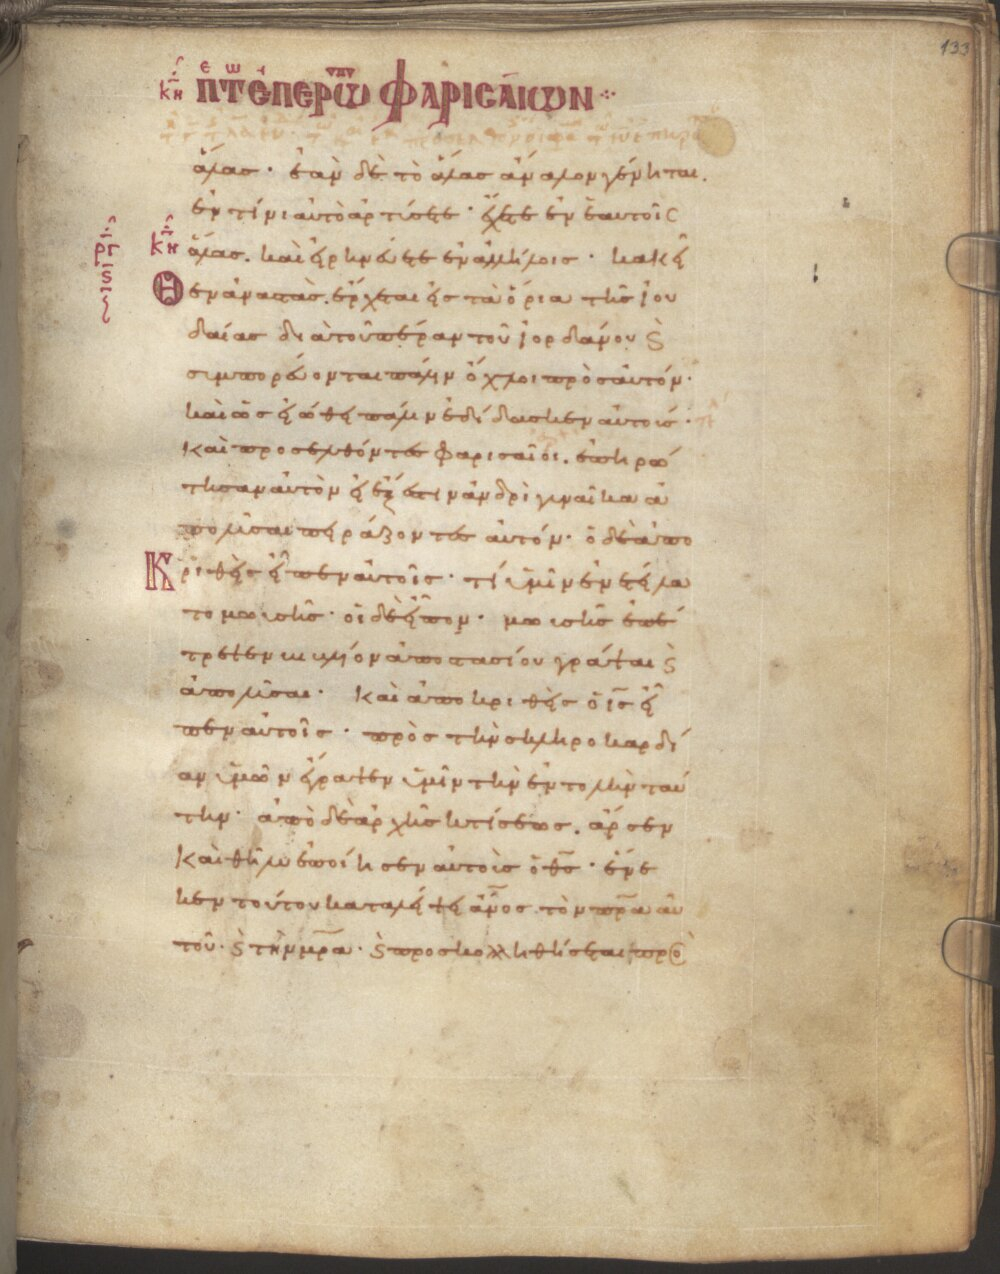 133
ἅλας· ἐὰν δὲ τὸ ἅλας ἄναλον γένηται.
ἐν τίνι αὐτὸ ἀρτύσετε· ἔχετε ἐν ἑαυτοῖς
ἅλας. καὶ εἰρηνεύετε ἐν ἀλλήλοις·
ἀναστὰς. ἔρχεται εἰς τὰ ὅρια τῆς ἰου
δαίας διὰ τοῦ πέραν τοῦ ἰορδάνου ϗ
συμπορεύονται πάλιν ὄχλοι πρὸς αὐτόν·
καὶ ὡς εἰώθει πάλιν ἐδίδασκεν αὐτούς·
Καὶ προσελθόντες φαρισαῖοι. ἐπηρώ
τησαν αὐτὸν εἰ ἔξεστιν ἀνδρὶ γυναῖκα ἀ
πολῦσαι πειράζοντες αὐτόν· ὁ δὲ ἀπο
Κριθεὶς εἶπεν αὐτοῖς· τί ὑμῖν ἐνετείλα
το μωϊσῆς· οἱ δὲ εἶπον· μωϊσῆς ἐπέ
τρεψεν βιβλίον ἀποστασίου γράψαι ϗ
ἀπολῦσαι· Καὶ ἀποκριθεὶς ὁ ις εἶ
πεν αὐτοῖς· πρὸς τὴν σκληροκαρδί
αν ὑμῶν ἔγραψεν ὑμῖν τὴν ἐντολὴν ταύ
την· ἀπὸ δὲ ἀρχῆς κτίσεως. ἄρσεν
Καὶ θῆλυ ἐποίησεν αὐτοὺς ὁ θς· ἕνε
κεν τούτου καταλείψει ἄνος τὸν πρα αὐ
τοῦ· ϗ τὴν μρα· ϗ προσκολληθήσεται πρὸς